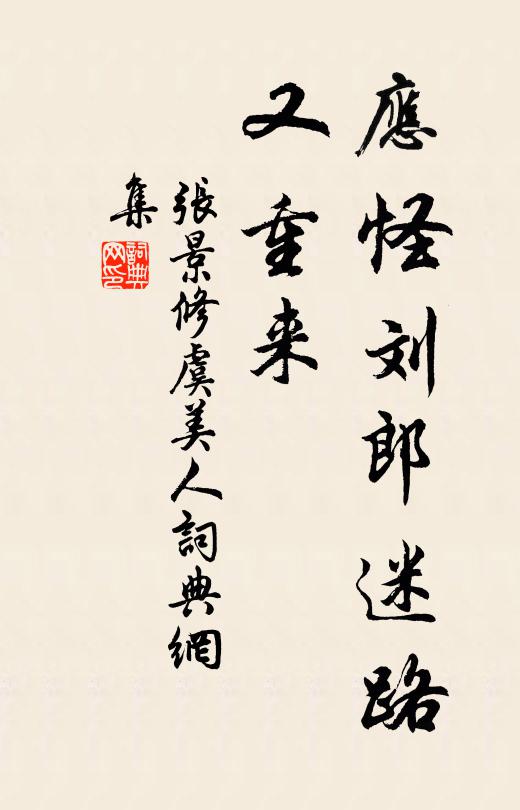 應怪刘郎迷路
又重来
張景修虞美人詞典網
集
詞典
网印